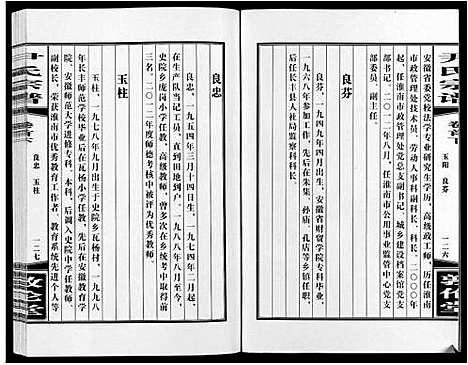 尹氏宗谱
卷首下
玉阳 良芬
一二六
敦伦堂
安徽省委党校法学专业研究生学历，高级政工师，历任淮南
市政管理处技术员、劳动人事科副科长、科长，二〇〇〇年
起，任淮南市政管理处党总支副书记、城乡建设档案馆党支
部书记。二〇一二年八月，任淮南市公用事业监管中心党支
部书记、副主任。
良芬
良芬，一九四九年四月出生，安徽省财贸学院专科毕业，
一九六八年参加工作，先后在朱集、孙庙、孔店等乡镇任职，
后任长丰县人社局监察科科长。
良忠
良忠，一九五四年三月十四日生，一九七四年二月，
在生产队当记工员，直到田地到户，一九八八年八月至今，
史院乡庞岗小学任教，高级教师，曾多次在乡统考中取得前
三名。二〇一二年度师德考核中被评为优秀教师。
玉柱
玉柱，一九七八年九月出生于史院乡瓦杨村，一九九八
年长丰师范学校毕业后在瓦杨小学任教，先后在安徽教育学
院、安徽师范大学进修专科、本科，后调入史院中学任教师、
副校长，荣获淮南市优秀教育工作者、教育系统先进个人等
尹氏宗谱
卷首下
良忠 玉柱
一二七
敦伦堂